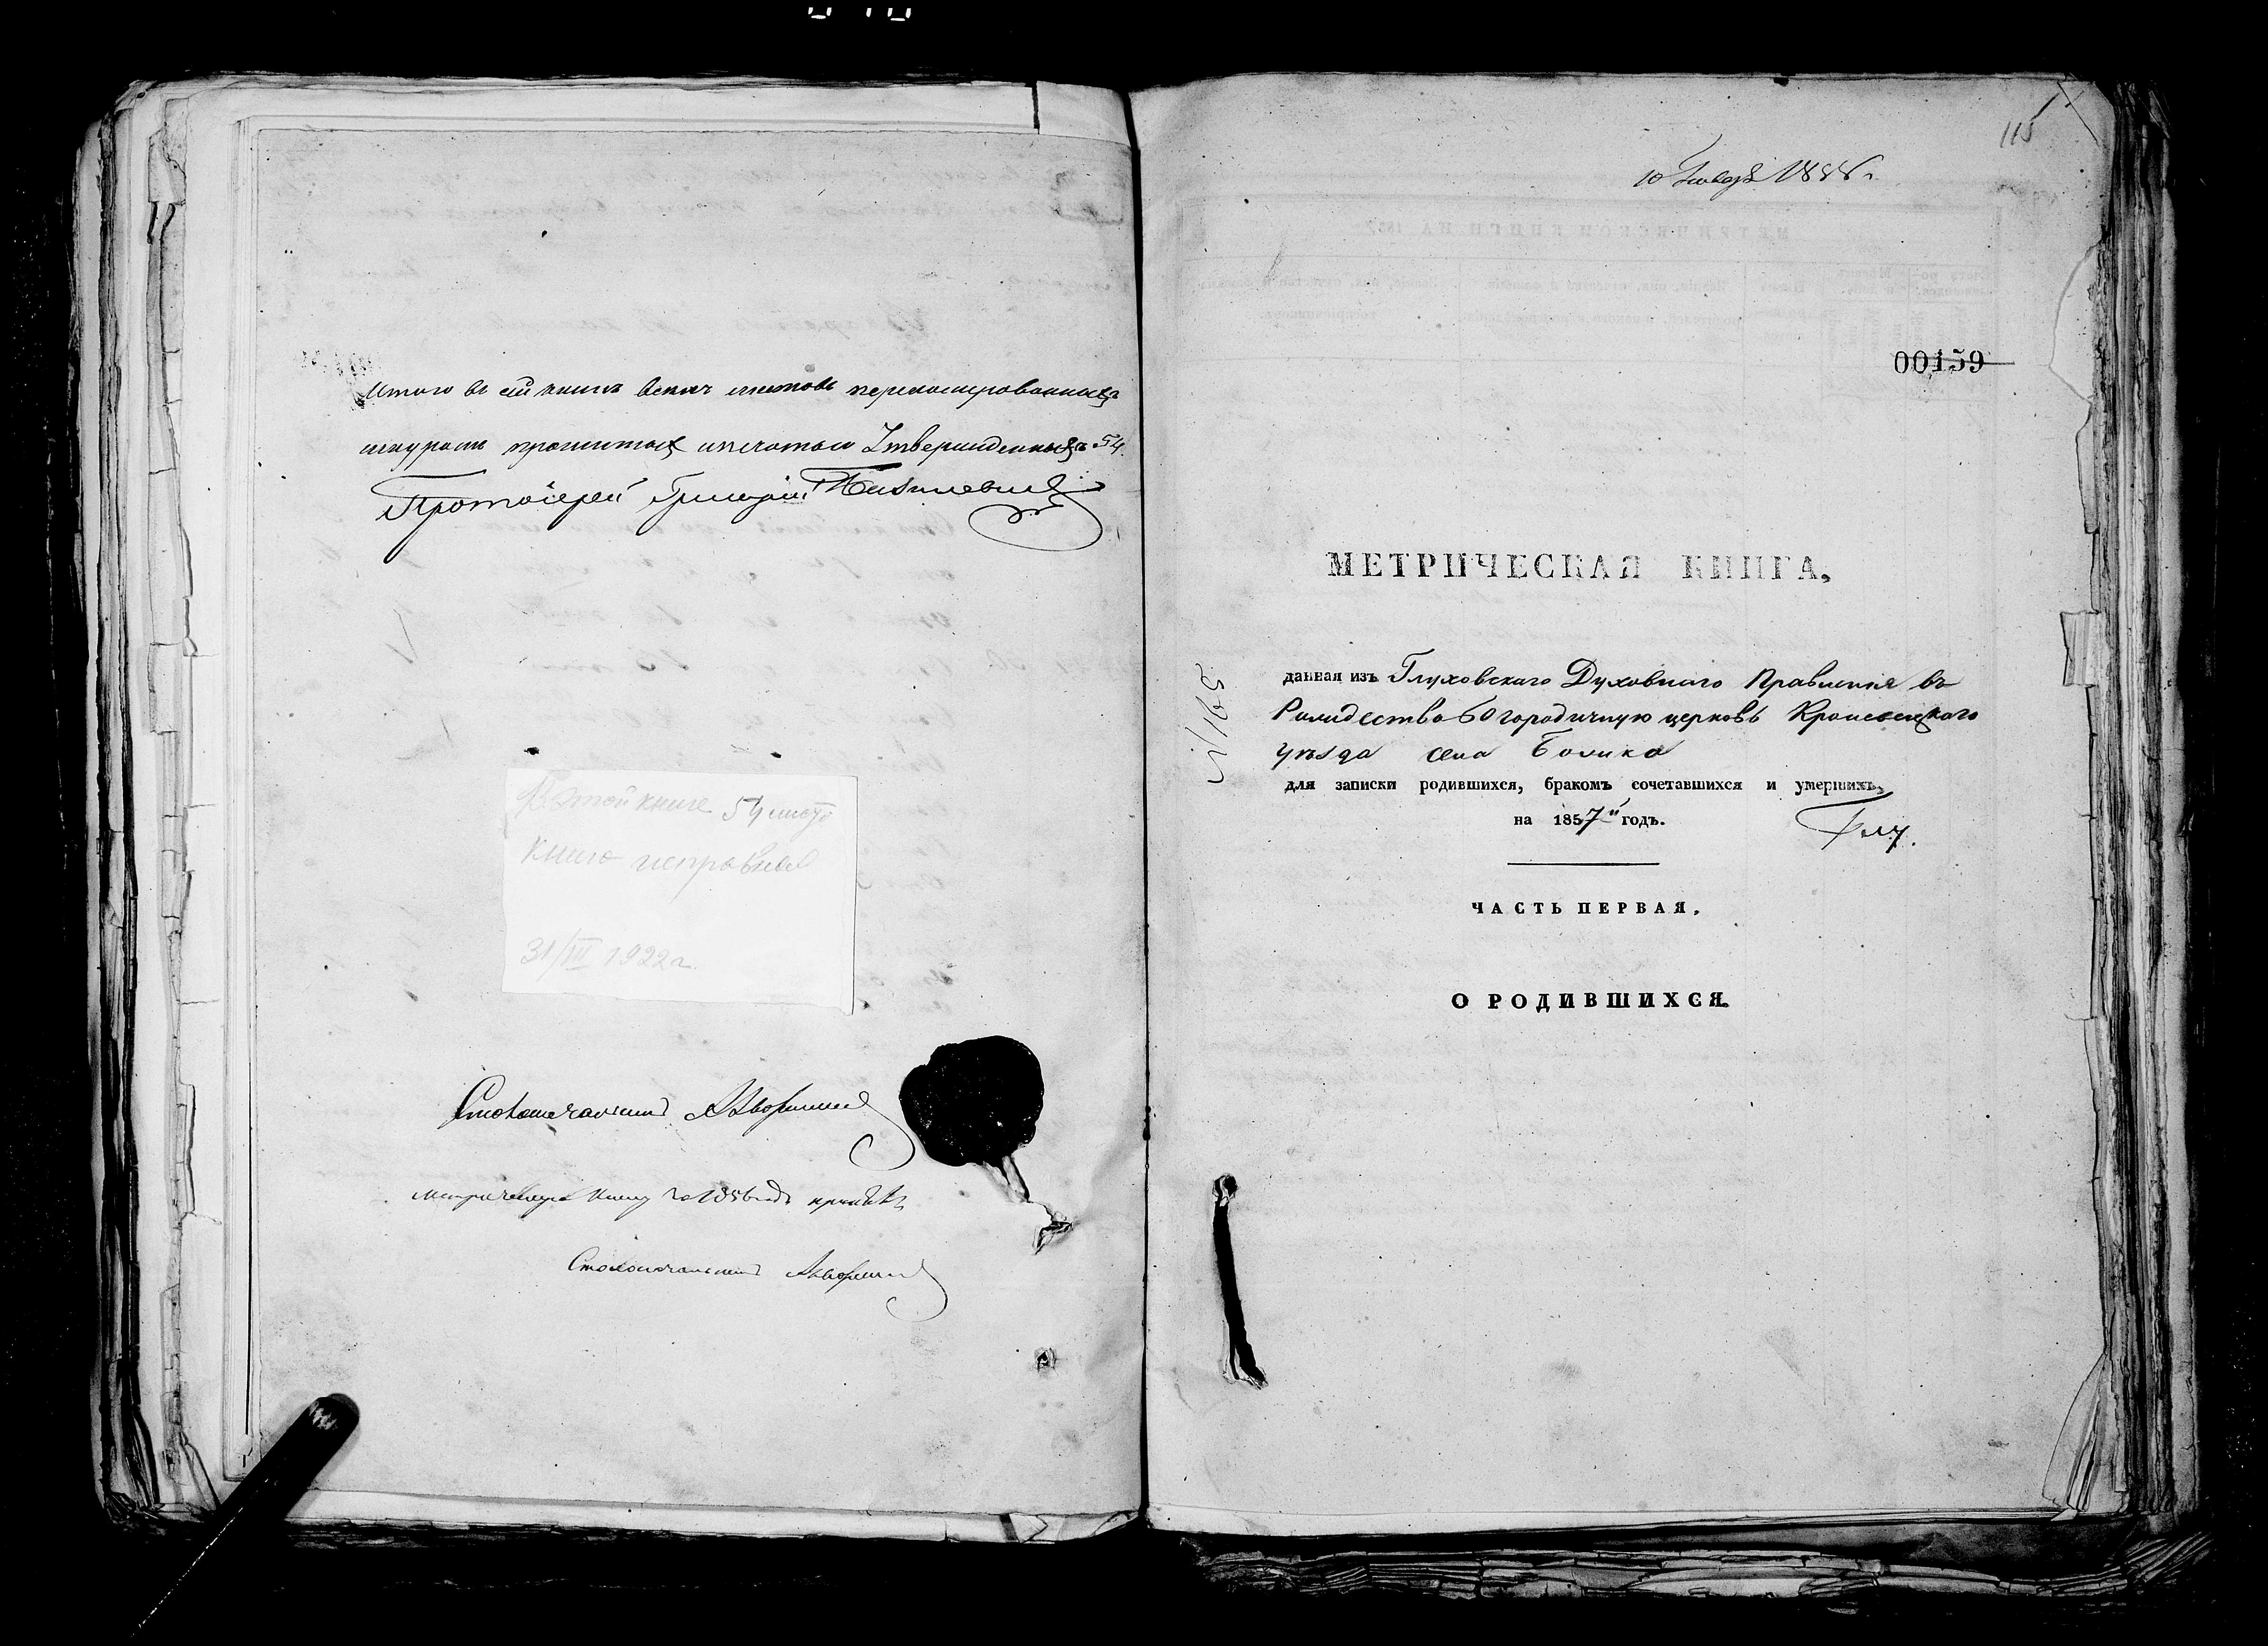 Итого въ сей книгѣ всѣхъ листовъ перномерованныхъ
шнуромъ прошитыхъ и печатью утвержденныхъ 54.
Протоіерей Григорій
В этой книге 54 листа
книга исправна
31/III 1922 г.
Столоначальникъ
Метрическую книгу за 1856 годъ
Столоначальникъ
115
10 Января 1858 г.
00159
МЕТРИЧЕСКАЯ КНИГА,
данная изъ Глуховскаго Духовнаго Правленія въ
Рождество Богородичную церковь Кролевецкаго
уѣзда села
для записки родившихся, бракомъ сочетавшихся и умершихъ,
на 1857й годъ.
Глу.
ЧАСТЬ ПЕРВАЯ.
О РОДИВШИХСЯ.